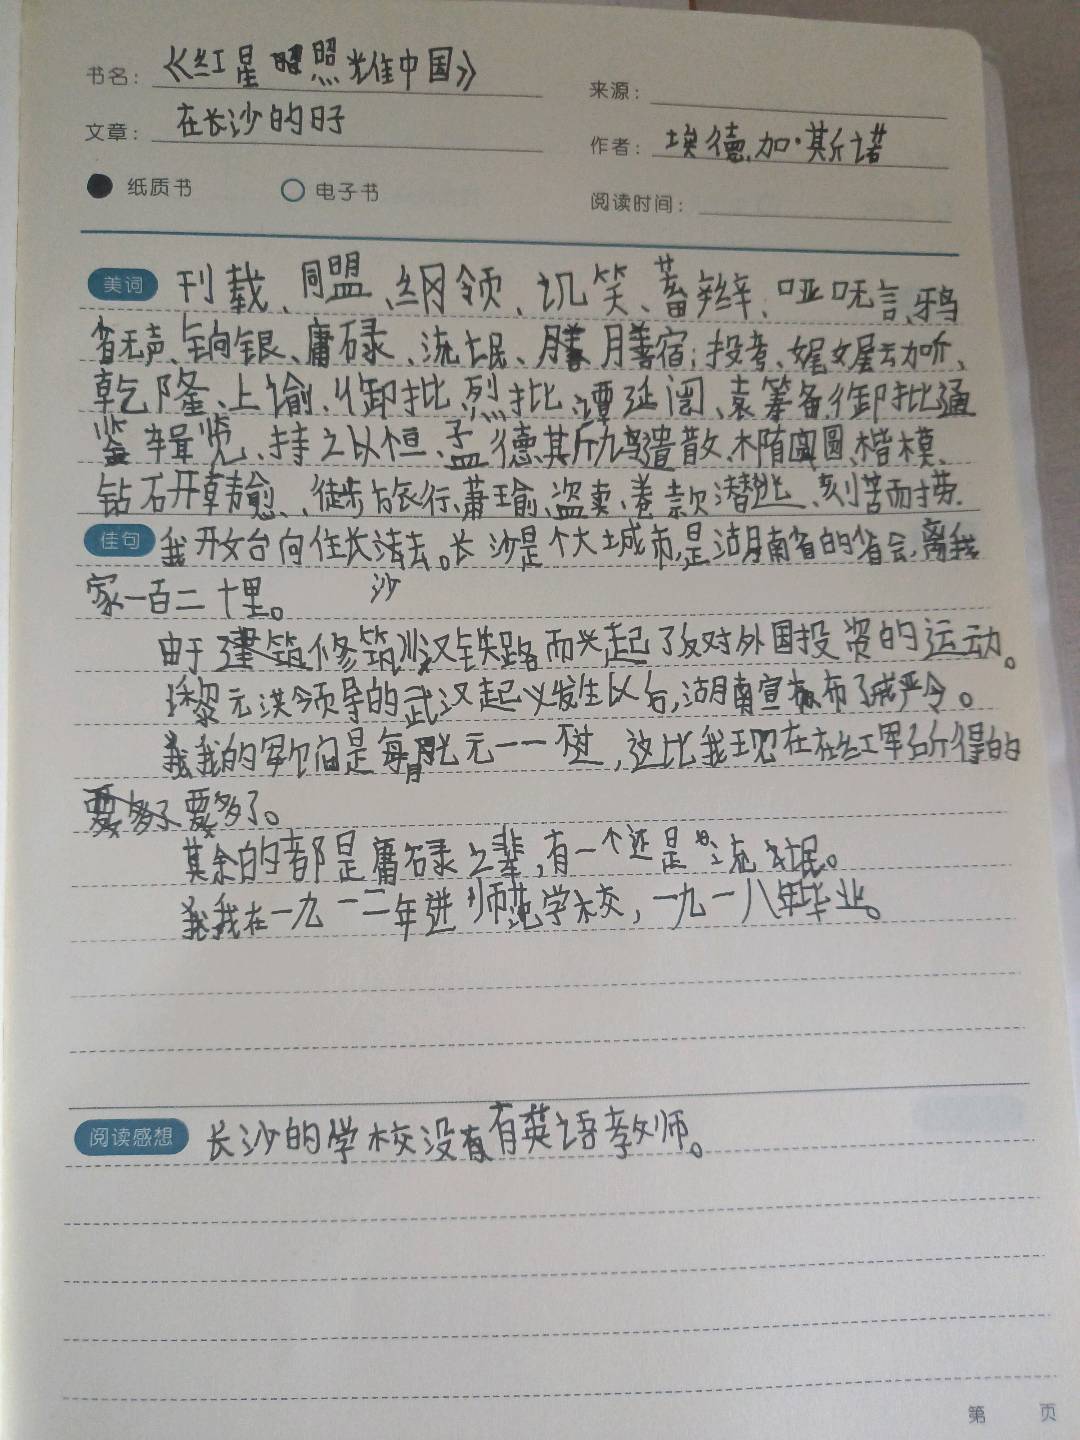 书名： 《红星照耀中国》
来源：
文章： 在长沙的日子
作者： 埃德加·斯诺
纸质书 电子书
阅读时间：
美词 刊载、同盟、纲领、讥笑、蓄辫、哑口无言、鸦
雀无声、饷银、庸碌、流氓、膳宿；投考、娓娓动听、
乾隆、上谕、御批、谭延闿、袁 御批通
鉴辑览、持之以恒、孟德斯鸠、遣散、椭圆、楷模、
钻石、徒步旅行、萧瑜、盗卖、卷款潜逃、刻苦耐劳
佳句 我开始向往长沙去。长沙是个大城市，是湖南省的省会，离我
家一百二十里。
由于修筑川汉铁路而兴起了反对外国投资的运动。
黎元洪领导的武汉起义发生以后，湖南宣布了戒严令。
我的军饷是每月七元——不过，这比我现在在红军所得的
要多了。
其余的都是庸碌之辈，有一个还是流氓。
我在一九一二年进师范学校，一九一八年毕业。
阅读感想 长沙的学校没有英语教师。
第 页